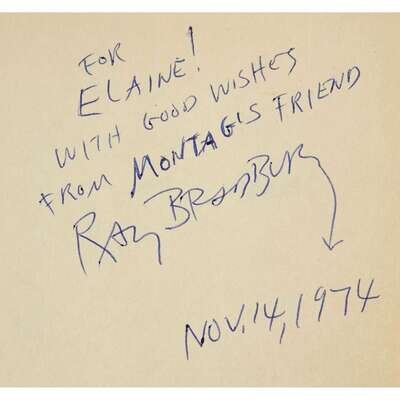 FOR
ELAINE!
WITH GOOD WISHES
FROM MONTAG'S FRIEND
RAY BRADBURY
NOV. 14, 1974